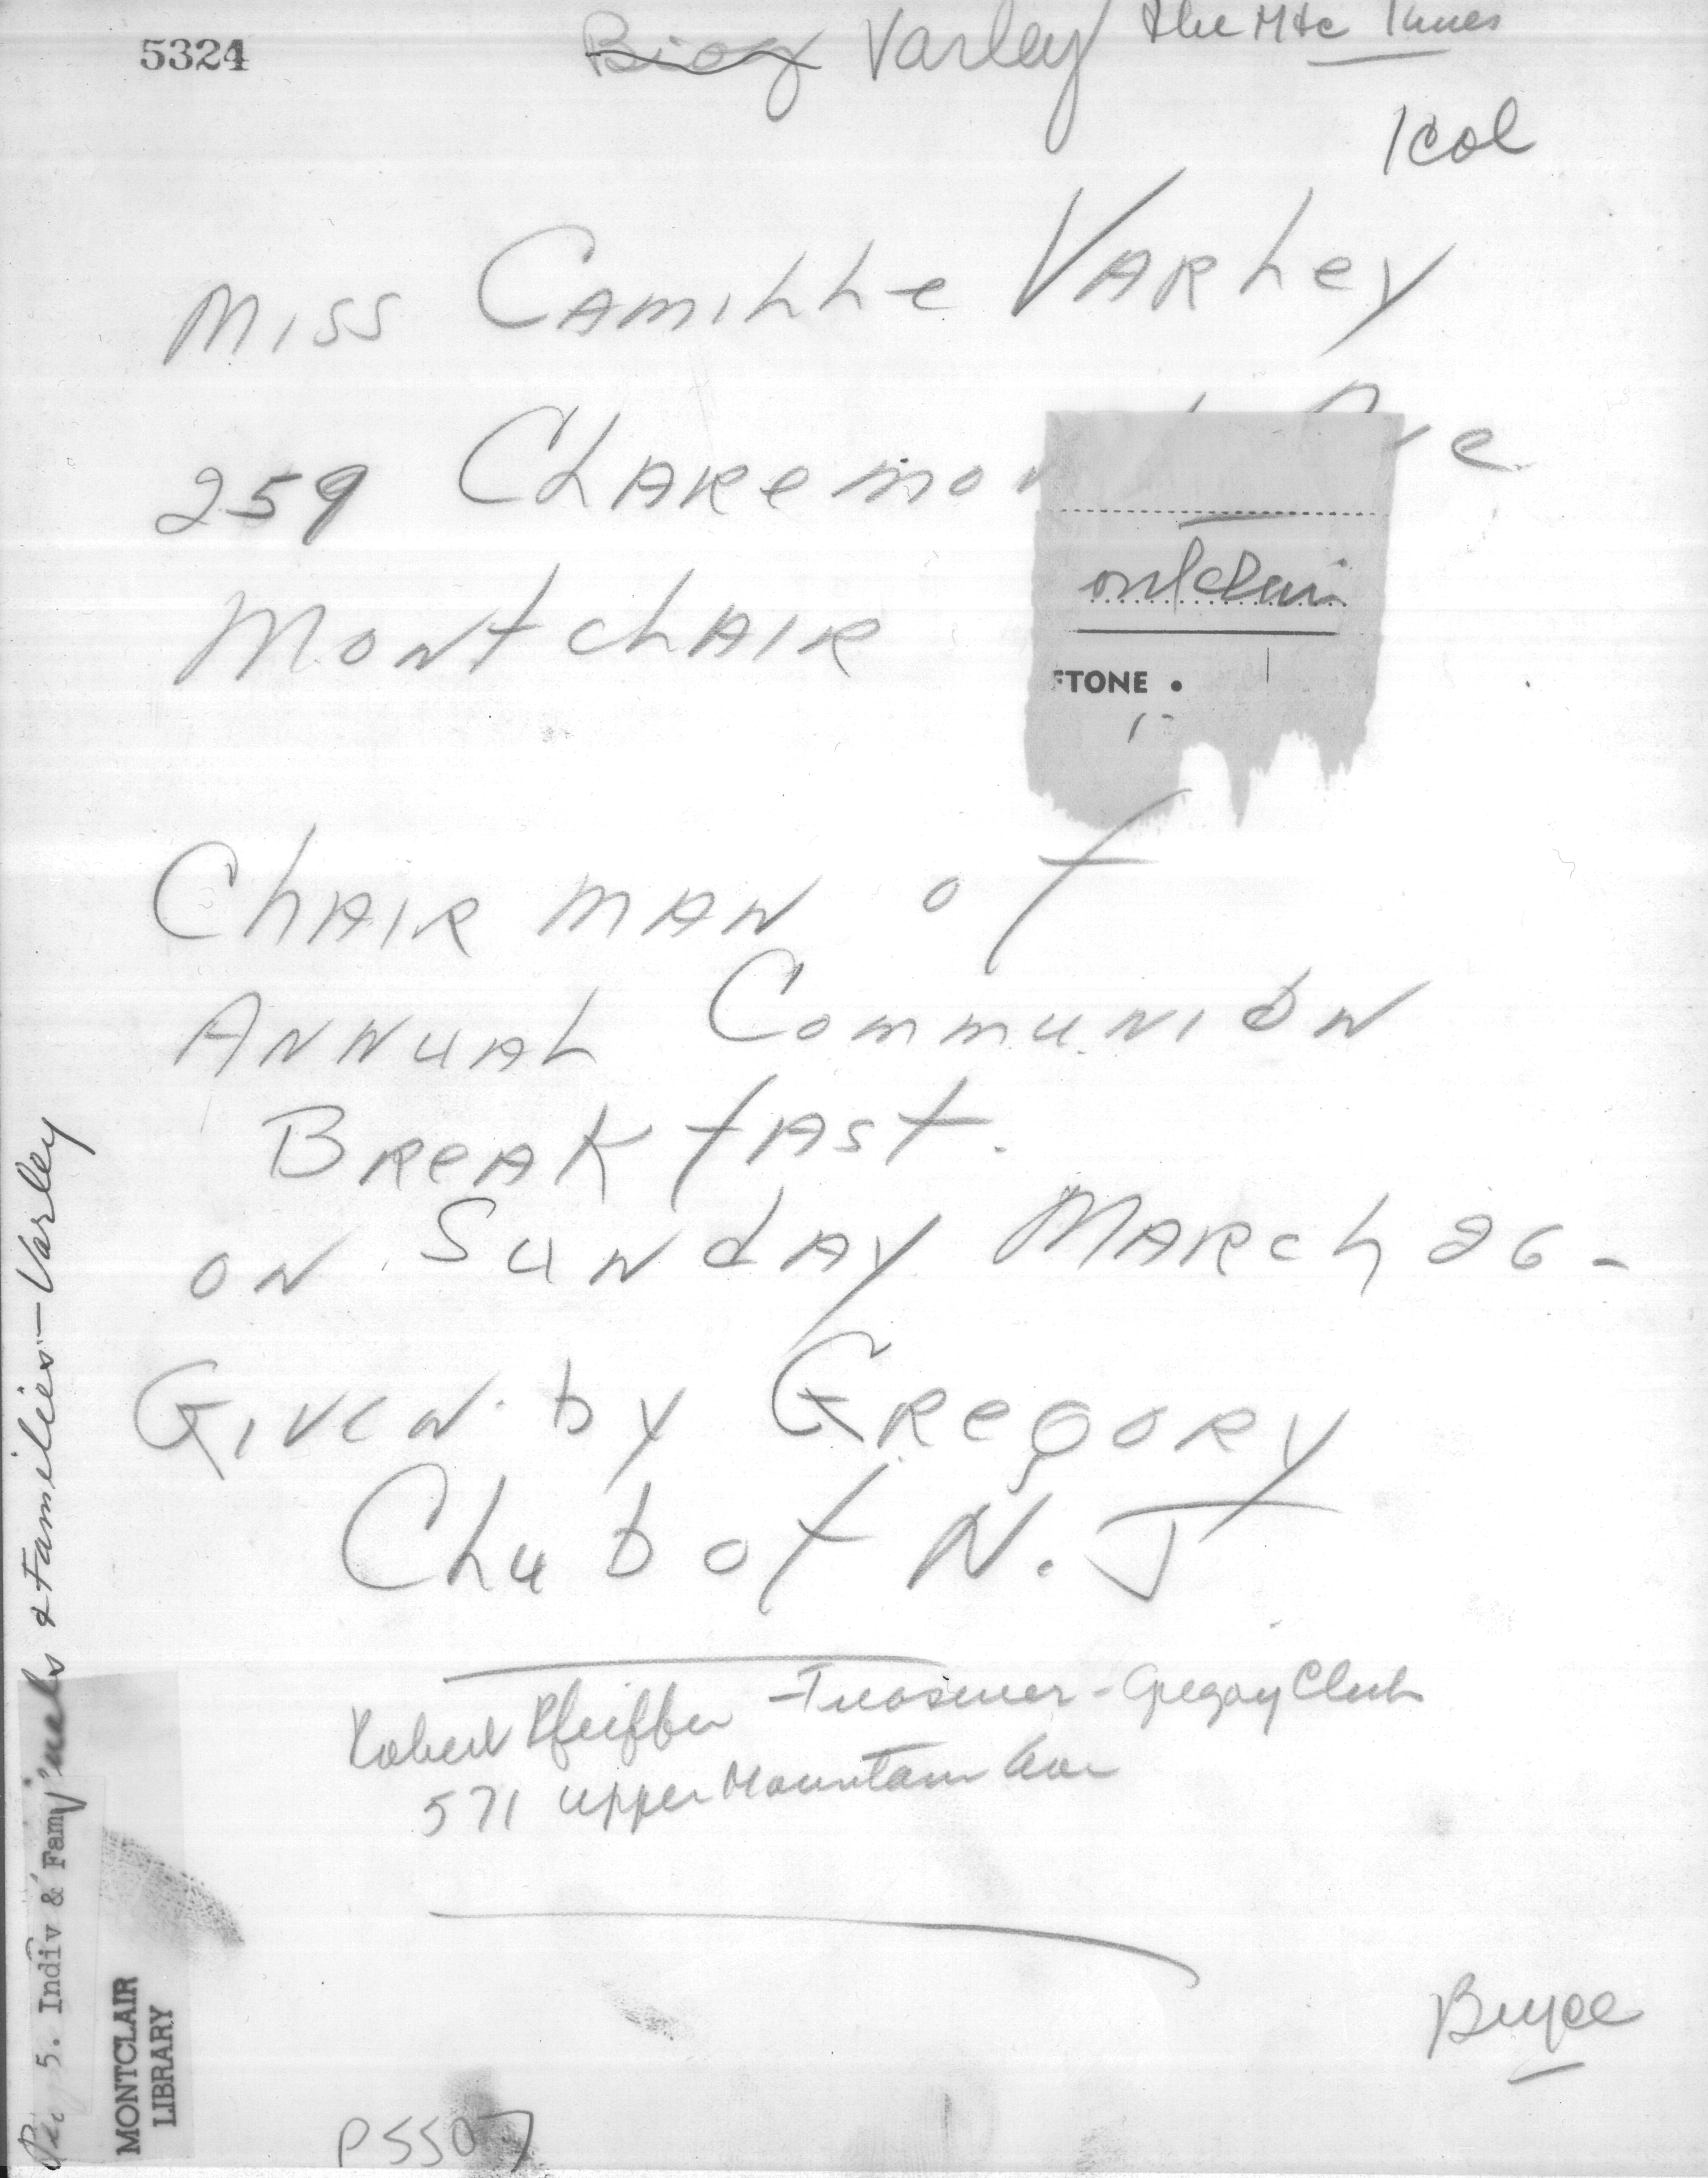 5324
Biog Varley The Mtc Times
1 col
Miss Camille Varley
259 Claremon Ave
Montclair
ontclair
FTONE •
Chairman of
Annual Communion
Breakfast.
on Sunday March 26-
Given by Gregory
Club of N.J
Robert Pfeiffer - Treasurer - Gregory Club
571 Upper Mountain Ave
Bryce
P5507
5. Indiv & Fam & Families - Varley
MONTCLAIR
LIBRARY